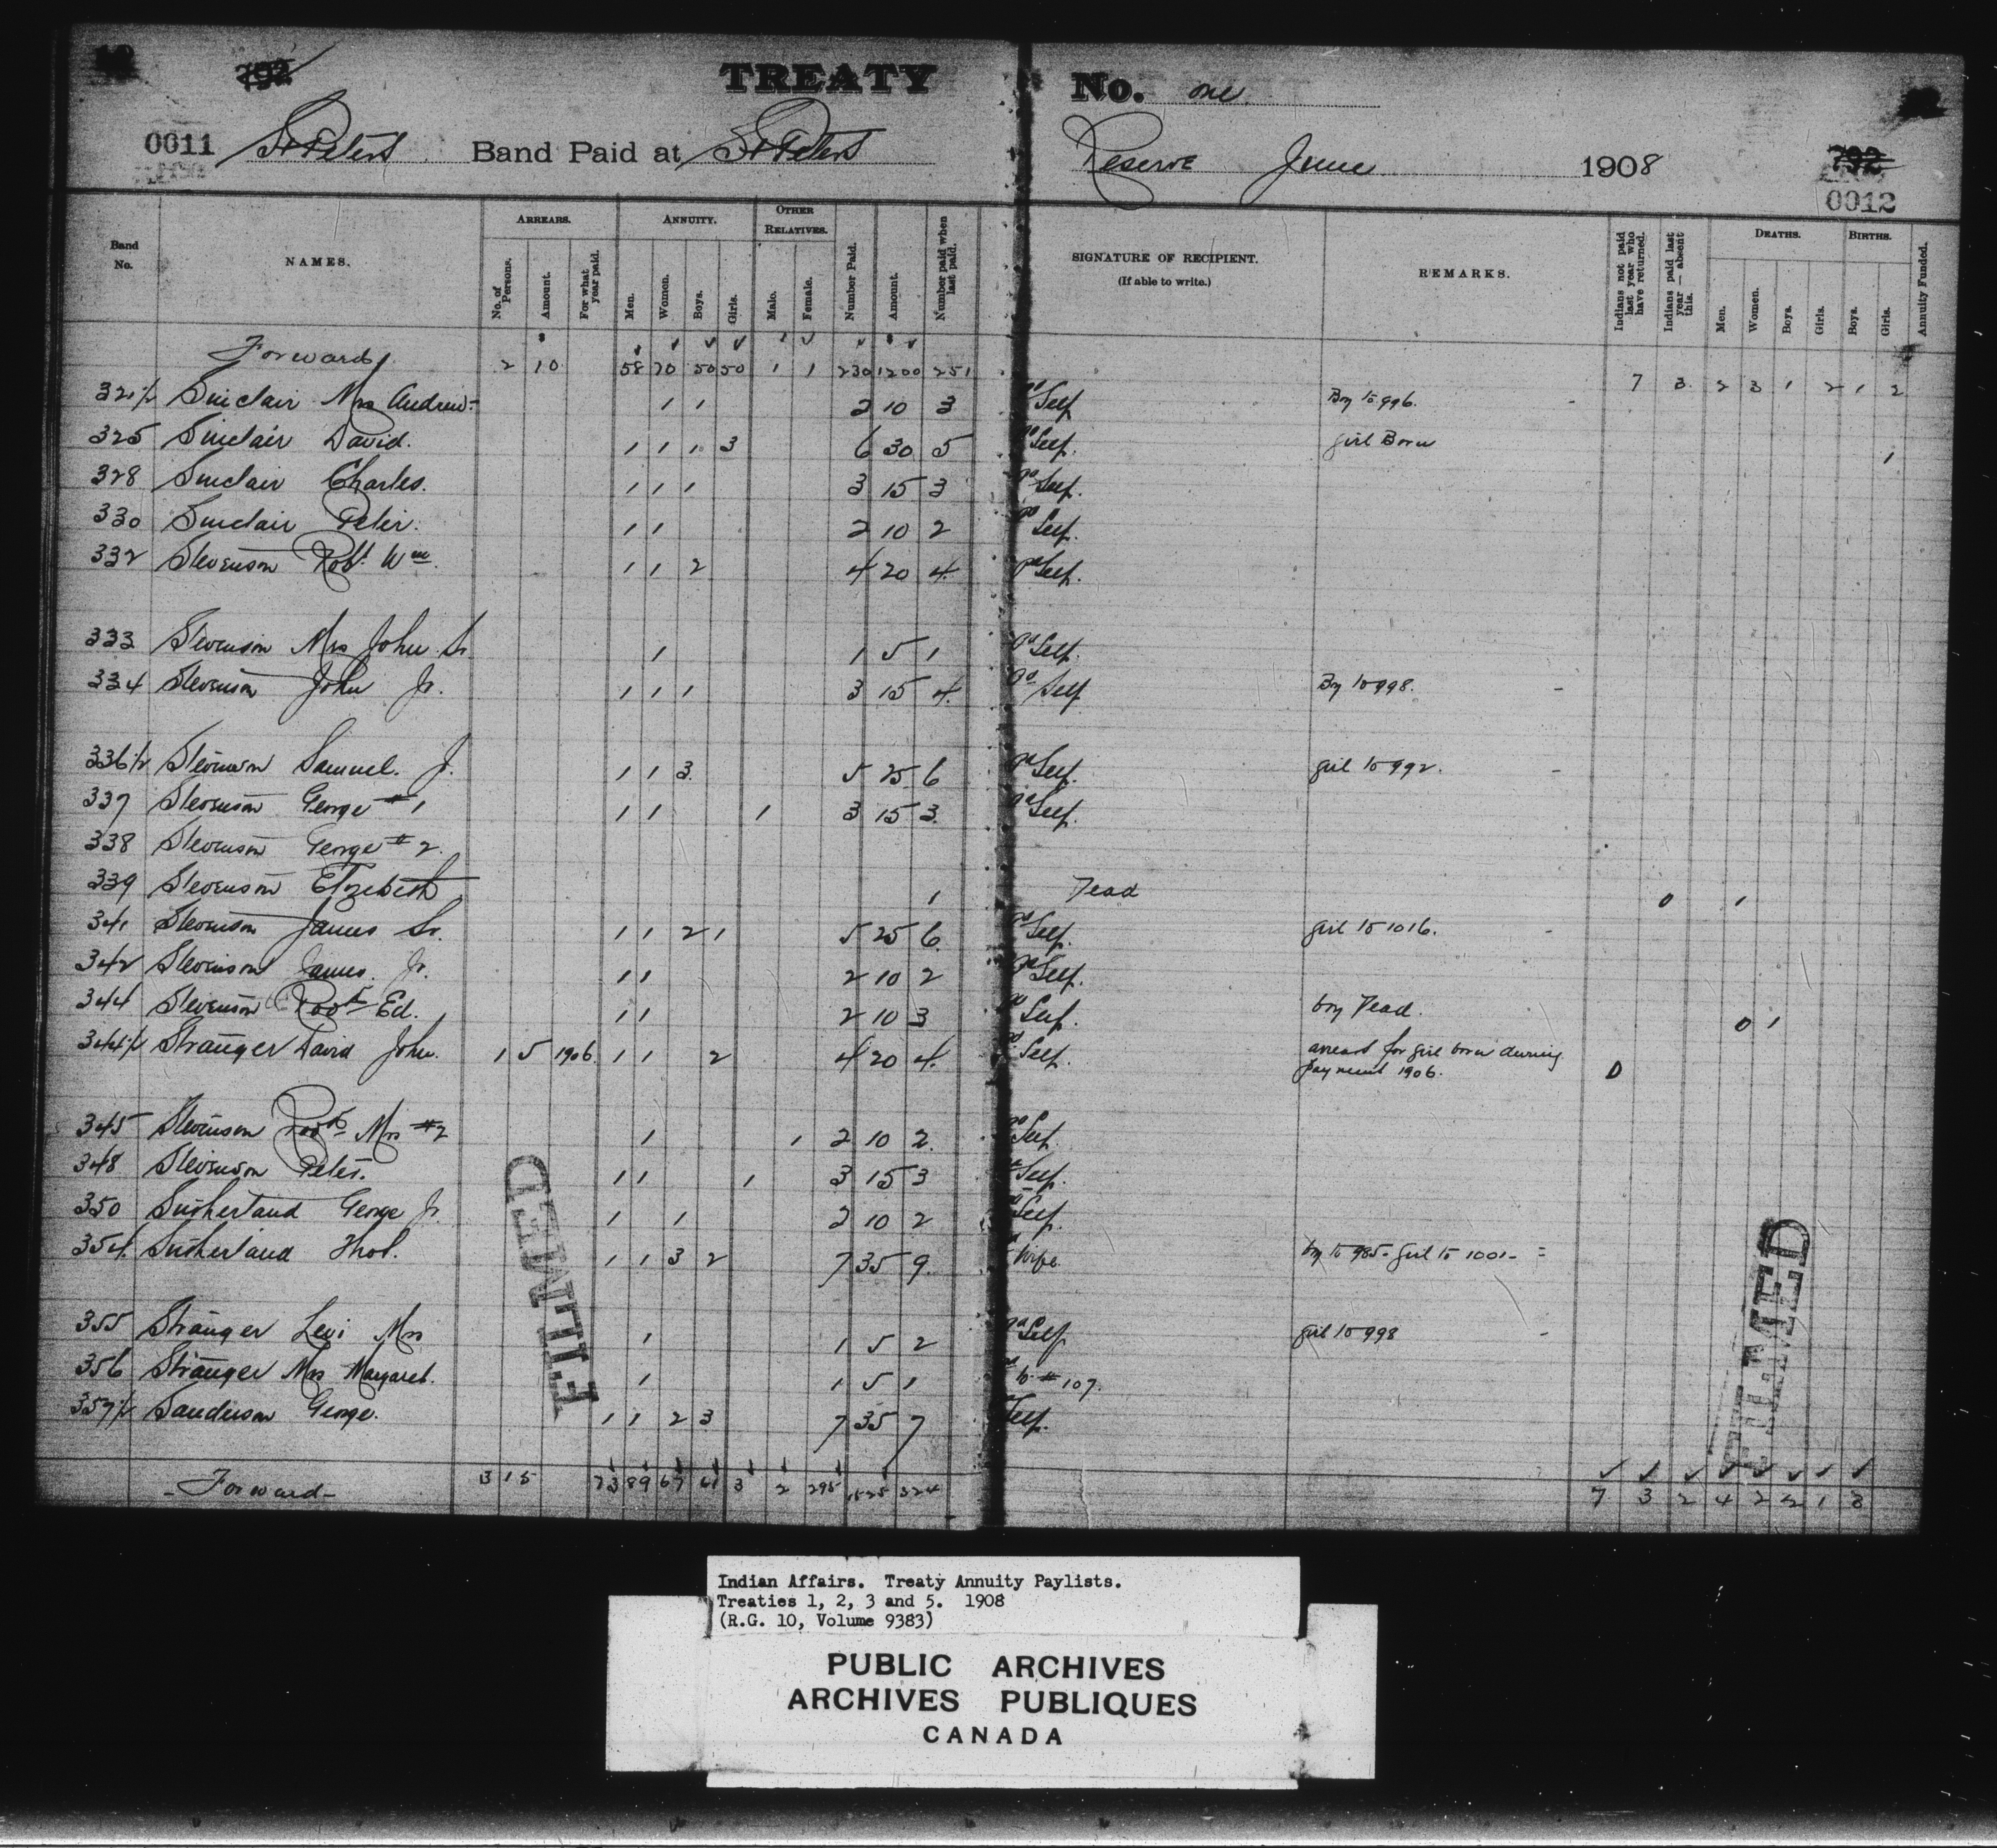 792
TREATY No. one
0011 St Peters Band Paid at St Peters Reserve June 1908 792
0012
Band No. NAMES. ARREARS. No. of Persons. Amount. For what year paid. ANNUITY. Men. Women. Boys. Girls. OTHER RELATIVES. Male. Female. Number Paid. Amount. Number paid when last paid. SIGNATURE OF RECIPIENT. (If able to write.) REMARKS. Indians not paid last year who have returned. Indians paid last year — absent this. DEATHS. Men. Women. Boys. Girls. BIRTHS. Boys. Girls. Annuity Funded.
Forward 2 10 58 70 50 50 1 1 230 1200 251 7 3 2 3 1 2 1 2
321½ Sinclair Mrs Andrew 1 1 2 10 3 Self Boy to 996.
325 Sinclair David. 1 1 1 3 6 30 5 Self. girl Born 1
328 Sinclair Charles. 1 1 1 3 15 3 Self.
330 Sinclair Peter. 1 1 2 10 2 Self.
332 Stevenson Robt Wm. 1 1 2 4 20 4 Self.
333 Stevenson Mrs John Sr. 1 1 5 1 Self.
334 Stevenson John Jr. 1 1 1 3 15 4. Self Boy to 998. -
336½ Stevenson Samuel. J. 1 1 3. 5 25 6 Self. girl to 992. -
337 Stevenson George #1 1 1 1 3 15 3. Self.
338 Stevenson George #2.
339 Stevenson Elizabeth 1 Dead 0 1
341 Stevenson James Sr. 1 1 2 1 5 25 6. Self. girl to 1016. -
342 Stevenson James. Jr. 1 1 2 10 2 Self.
344 Stevenson Robt Ed. 1 1 2 10 3 Self. boy Dead. 0 1
344½ Stranger David John. 1 5 1906. 1 1 2 4 20 4. Self. arrears for girl born during
payment 1906. 0
345 Stevenson Robt Mrs #2 1 1 2 10 2. Self.
348 Stevenson Peter. 1 1 1 3 15 3 Self.
350 Sutherland George Jr. 1 1 2 10 2 Self.
354. Sutherland Thos. 1 1 3 2 7 35 9. Wife boy to 985- girl to 1001-
355 Stranger Levi Mrs 1 1 5 2 Self girl to 998 -
356 Stranger Mrs Margaret. 1 1 5 1 to #107.
357½ Sanderson George. 1 1 2 3 7 35 7 Self.
- Forward - 3 15 73 89 67 61 3 2 295 1525 324 7 3 2 4 2 2 1 3
FILMED
FILMED
Indian Affairs. Treaty Annuity Paylists.
Treaties 1, 2, 3 and 5. 1908
(R.G. 10, Volume 9383)
PUBLIC ARCHIVES
ARCHIVES PUBLIQUES
CANADA